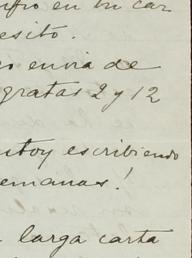 en tu car
esito.
envia de
gratas 2 y 12
estoy escribiendo
emanas!
larga carta